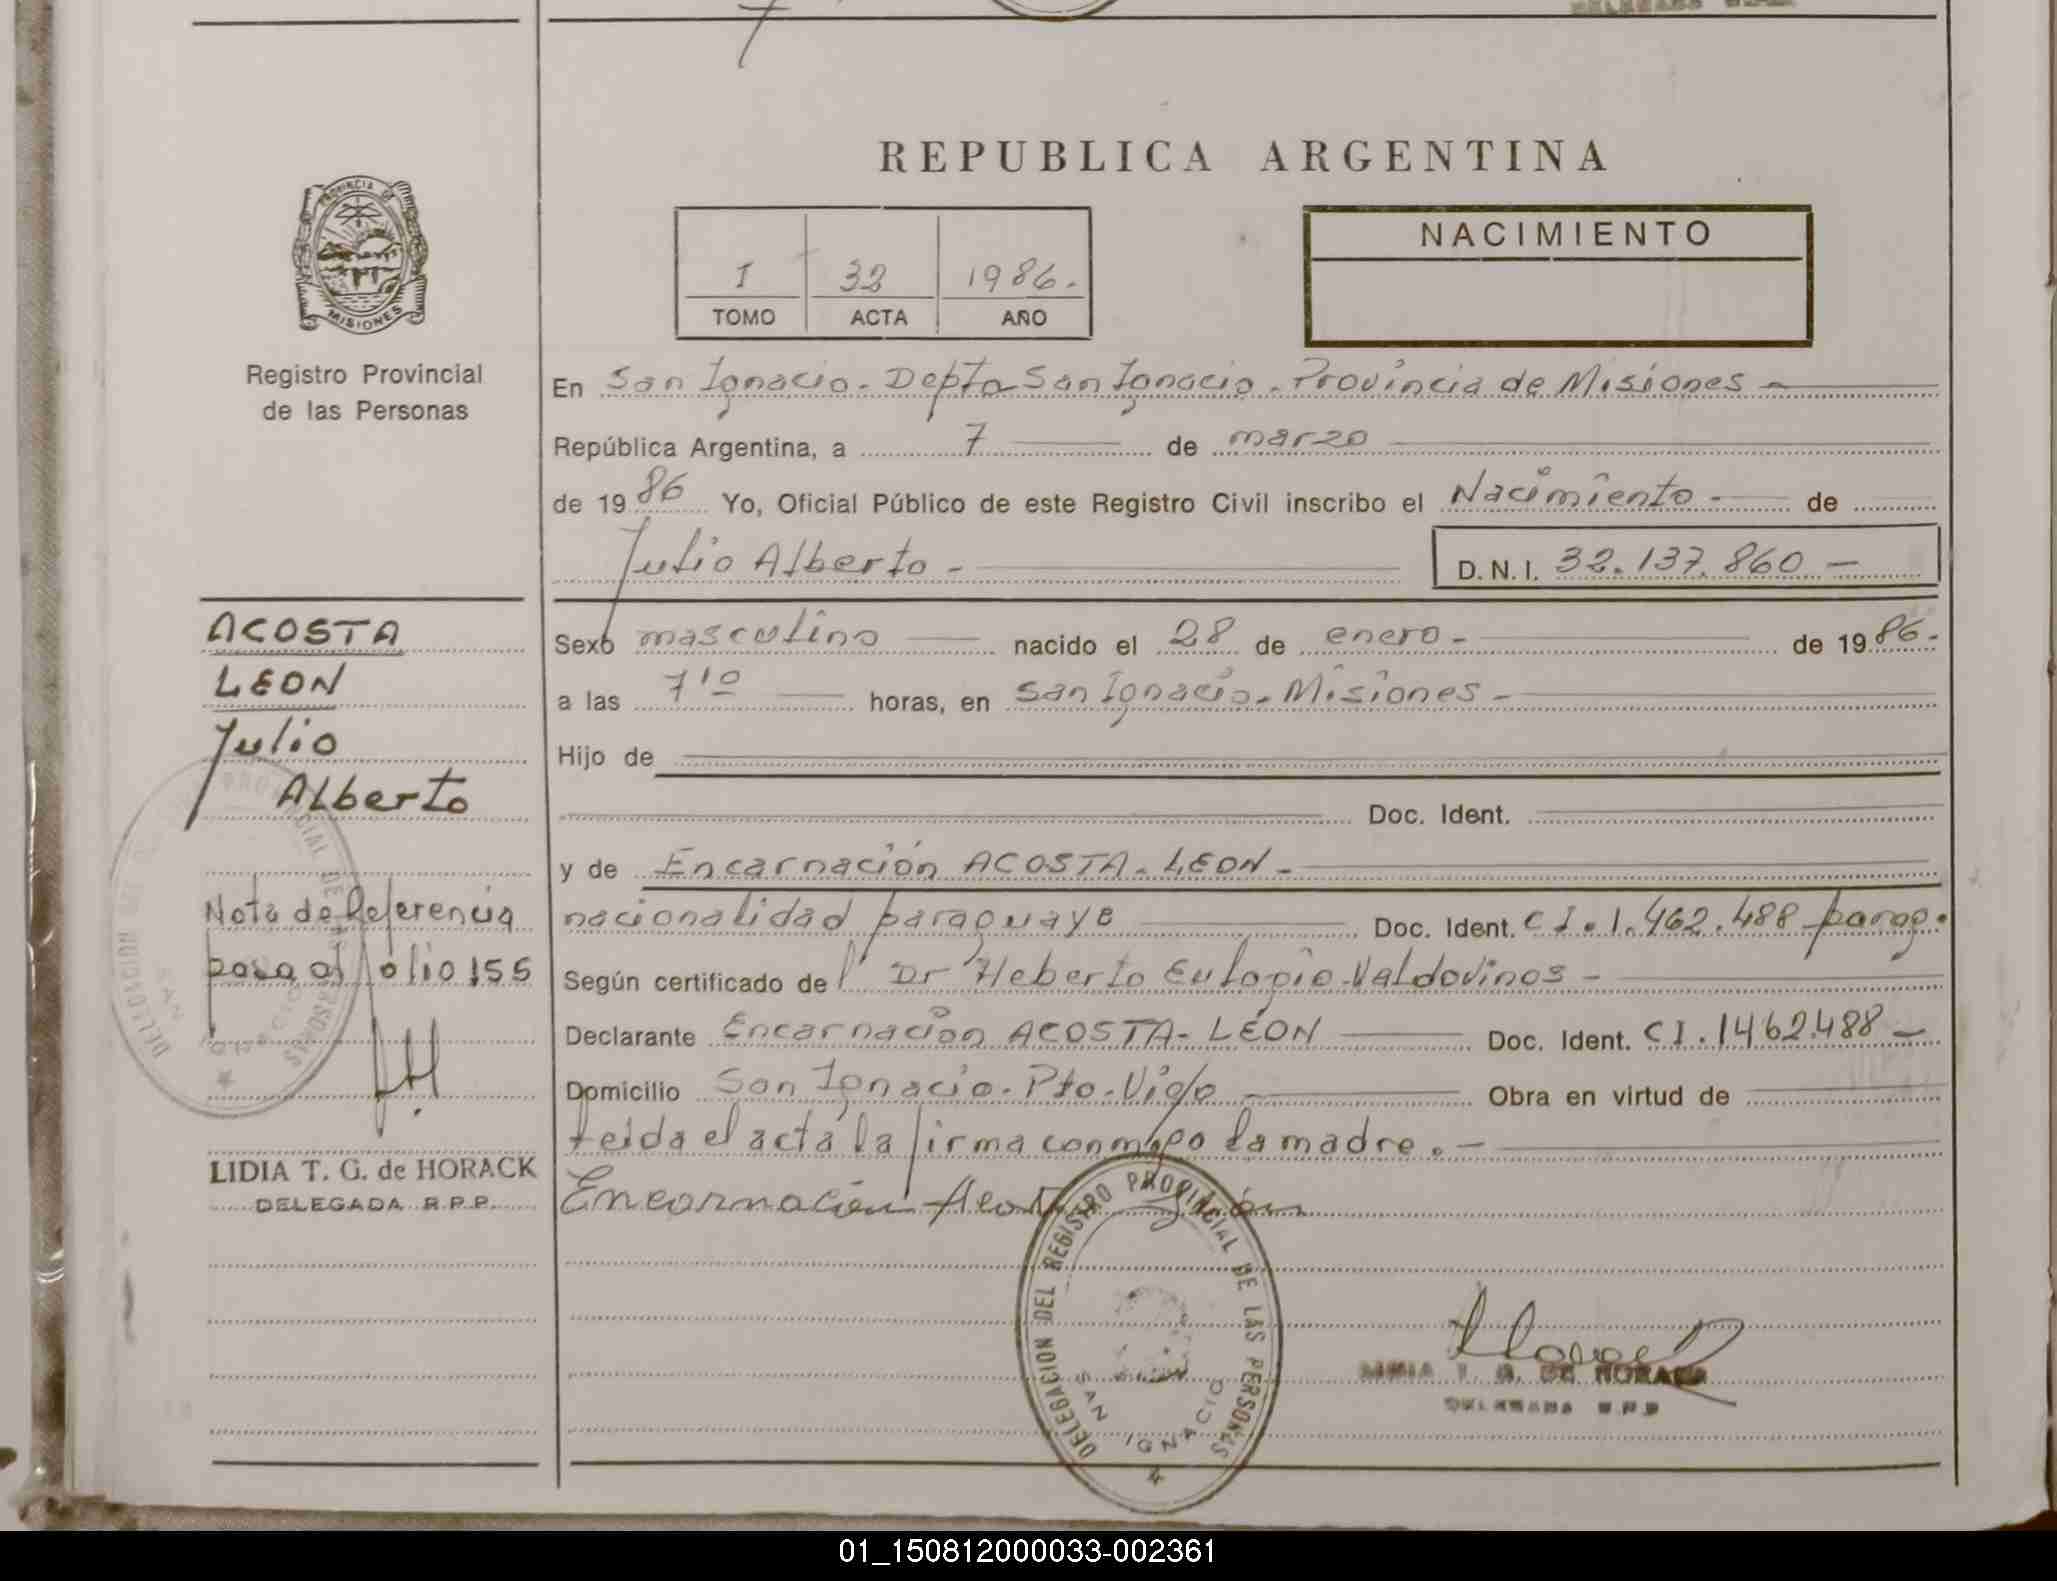 REPUBLICA ARGENTINA
PROVINCIA DE
MISIONES
Registro Provincial
de las Personas
I 32 1986.
TOMO ACTA AÑO
NACIMIENTO
En San Ignacio - Depto San Ignacio - Provincia de Misiones -
República Argentina, a 7 de marzo
de 1986 Yo, Oficial Público de este Registro Civil inscribo el Nacimiento - de
Julio Alberto -
D. N. I. 32.137.860 -
ACOSTA
LEON
Julio
Alberto
Nota de Referencia
pasa al folio 155
LIDIA T. G. de HORACK
DELEGADA R.P.P.
Sexo masculino nacido el 28 de enero - de 1986.
a las 7'10 horas, en San Ignacio - Misiones -
Hijo de
Doc. Ident.
y de Encarnación ACOSTA - LEON -
nacionalidad paraguaya Doc. Ident. C I. 1.462.488 parag.
Según certificado del Dr Heberto Eulogio Valdovinos -
Declarante Encarnación ACOSTA - LEÓN Doc. Ident. C I. 1462.488 -
Domicilio San Ignacio - Pto - Viejo Obra en virtud de
Leida el acta la firma conmigo la madre. -
Encarnación Acosta León
DELEGACION DEL REGISTRO PROVINCIAL DE LAS PERSONAS
SAN IGNACIO
LIDIA T. G. DE HORACK
DELEGADA R.P.P
01_150812000033-002361